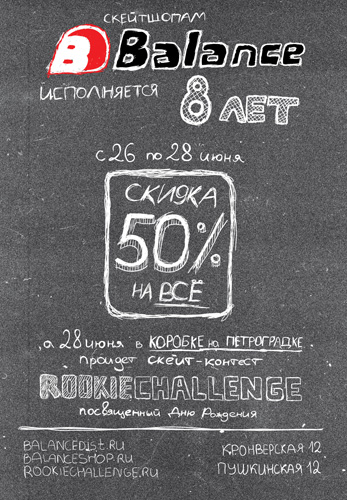 СКЕЙТШОПАМ
B Balance
ИСПОЛНЯЕТСЯ
8 ЛЕТ
с 26 по 28 июня
СКИДКА
50%
НА ВСЁ
а 28 июня в КОРОБКЕ на ПЕТРОГРАДКЕ
пройдет скейт-контест
ROOKIECHALLENGE
посвященный Дню Рождения
BALANCEDIST.RU
BALANCESHOP.RU
ROOKIECHALLENGE.RU
КРОНВЕРСКАЯ 12
ПУШКИНСКАЯ 12